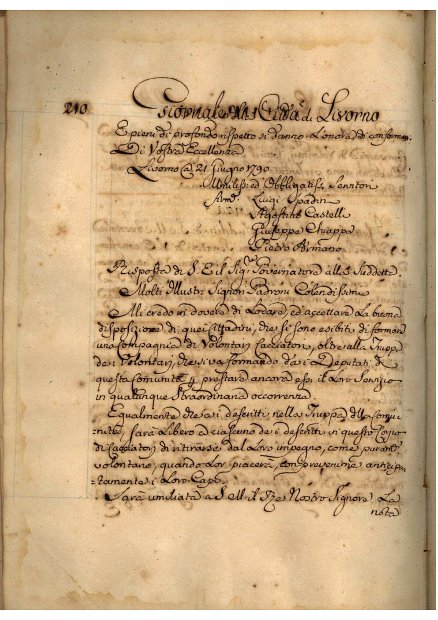 210 Giornale della Città di Livorno
E pieni di profondo rispetto si danno L'onore di conferman
Di Vostra Eccellenza
Livorno @ 21 Giugno 1790.
Umiliss.i ed Obbligatiss. Servitori
Luigi Spadini
Agostino Castelli
Giuseppe Chiappe
Pietro Armano
Risposta di S. E. il Sig.re Governatore alla Suddetta.
Molti Illustri Signori Padroni Colendissimi
Mi credo in dovere di Lodare, ed accettare La buona
disposizione di quei Cittadini, che si sono esibiti di formare
una Compagnia di Volontari Cacciatori, oltre alla Truppa
dei Volontari, che si va formando dai Deputati di
questa Comunità p prestare ancora essi il Loro Servizio
in qualunque straordinaria occorrenza.
Egualmente che ai descritti nella Truppa della Comu-
nità, sarà Libero a ciascuno dei descritti in questo Corpo
di Cacciatori di ritirarsi dal Loro impegno, come puram.
volontario, quando Lor piacerà, con prevenirne anticipa-
tamente i Loro Capi.
Sarà umiliata a S. M. il Re Nostro Signore La
nota